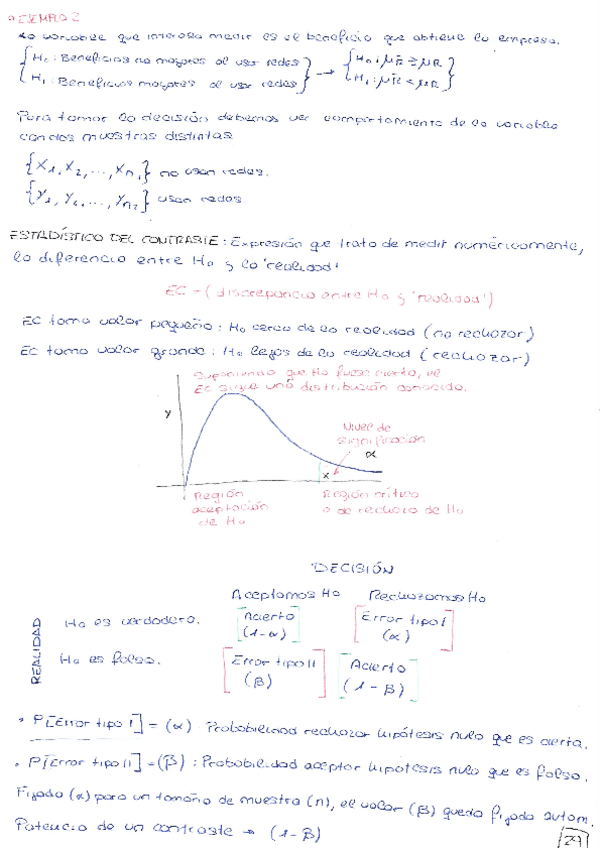 • EJEMPLO 2
La variable que interesa medir es el beneficio que obtiene la empresa.
{ H₀: Beneficios no mayores al usar redes } → { H₀: μR̄ ≥ μR }
{ H₁: Beneficios mayores al usar redes } { H₁: μR̄ < μR }
Para tomar la decisión debemos ver comportamiento de la variable
con dos muestras distintas
{X₁, X₂, ..., Xn₁} no usan redes.
{Y₁, Y₂, ..., Yn₂} usan redes
ESTADÍSTICO DEL CONTRASTE: Expresión que trata de medir numéricamente,
la diferencia entre H₀ y la 'realidad'
EC = (discrepancia entre H₀ y 'realidad')
EC toma valor pequeño: H₀ cerca de la realidad (no rechazar)
EC toma valor grande: H₀ lejos de la realidad (rechazar)
Suponiendo que H₀ fuese cierta, el
EC sigue una distribución conocida.
Y
Nivel de
significación
α
x
Región
aceptación
de H₀
Región crítica
o de rechazo de H₀
DECISIÓN
Aceptamos H₀ Rechazamos H₀
REALIDAD
H₀ es verdadera. [Acierto (1-α)] [Error tipo I (α)]
H₀ es falsa. [Error tipo II (β)] [Acierto (1-β)]
• P[Error tipo I] = (α) Probabilidad rechazar hipótesis nula que es cierta.
• P[Error tipo II] = (β): Probabilidad aceptar hipótesis nula que es falsa.
Fijado (α) para un tamaño de muestra (n), el valor (β) queda fijado autom.
Potencia de un contraste → (1-β)